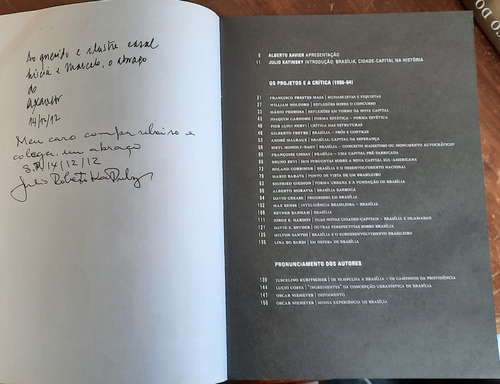 Ao querido e ilustre casal
e Marcelo, o abraço
do
14/12/12
Meu caro
colega, um abraço
S.P. 14/12/12
Julio Roberto Katinsky
9 ALBERTO XAVIER APRESENTAÇÃO
11 JULIO KATINSKY INTRODUÇÃO: BRASÍLIA, CIDADE-CAPITAL NA HISTÓRIA
OS PROJETOS E A CRÍTICA (1956-64)
21 FRANCISCO PRESTES MAIA | MUDANCISTAS E FIQUISTAS
27 WILLIAM HOLFORD | REFLEXÕES SOBRE O CONCURSO
MÁRIO PEDROSA | REFLEXÕES EM TORNO DA NOVA CAPITAL
JOAQUIM CARDOZO | FORMA ESTÁTICA – FORMA ESTÉTICA
PIER LUIGI NERVI | CRÍTICA DAS ESTRUTURAS
GILBERTO FREYRE | BRASÍLIA – PRÓS E CONTRAS
ANDRÉ MALRAUX | BRASÍLIA, CAPITAL DA ESPERANÇA
SIBYL MOHOLY-NAGY | BRASÍLIA – CONCEITO MAJESTOSO OU MONUMENTO AUTOCRÁTICO?
FRANÇOISE CHOAY | BRASÍLIA – UMA CAPITAL PRÉ-FABRICADA
BRUNO ZEVI | SEIS PERGUNTAS SOBRE A NOVA CAPITAL SUL-AMERICANA
ROLAND CORBISIER | BRASÍLIA E O DESENVOLVIMENTO NACIONAL
MARIO BARATA | PONTO DE VISTA DE UM BRASILEIRO
SIEGFRIED GIEDION | FORMA URBANA E A FUNDAÇÃO DE BRASÍLIA
ALBERTO MORAVIA | BRASÍLIA BARROCA
DAVID CREASE | PROGRESSO EM BRASÍLIA
MAX BENSE | INTELIGÊNCIA BRASILEIRA – BRASÍLIA
REYNER BANHAM | BRASÍLIA
111 JORGE E. HARDOY | DUAS NOVAS CIDADES-CAPITAIS – BRASÍLIA E ISLAMABAD
121 DAVID E. SNYDER | OUTRAS PERSPECTIVAS SOBRE BRASÍLIA
MILTON SANTOS | BRASÍLIA E O SUBDESENVOLVIMENTO BRASILEIRO
LINA BO BARDI | EM DEFESA DE BRASÍLIA
PRONUNCIAMENTO DOS AUTORES
139 JUSCELINO KUBITSCHEK | DE PAMPULHA A BRASÍLIA – OS CAMINHOS DA PROVIDÊNCIA
144 LUCIO COSTA | "INGREDIENTES" DA CONCEPÇÃO URBANÍSTICA DE BRASÍLIA
147 OSCAR NIEMEYER | DEPOIMENTO
150 OSCAR NIEMEYER | MINHA EXPERIÊNCIA DE BRASÍLIA